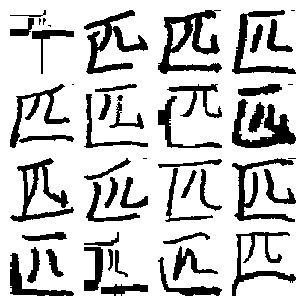 匹匹匹
匹匹匹匹
匹匹匹匹
匹匹匹